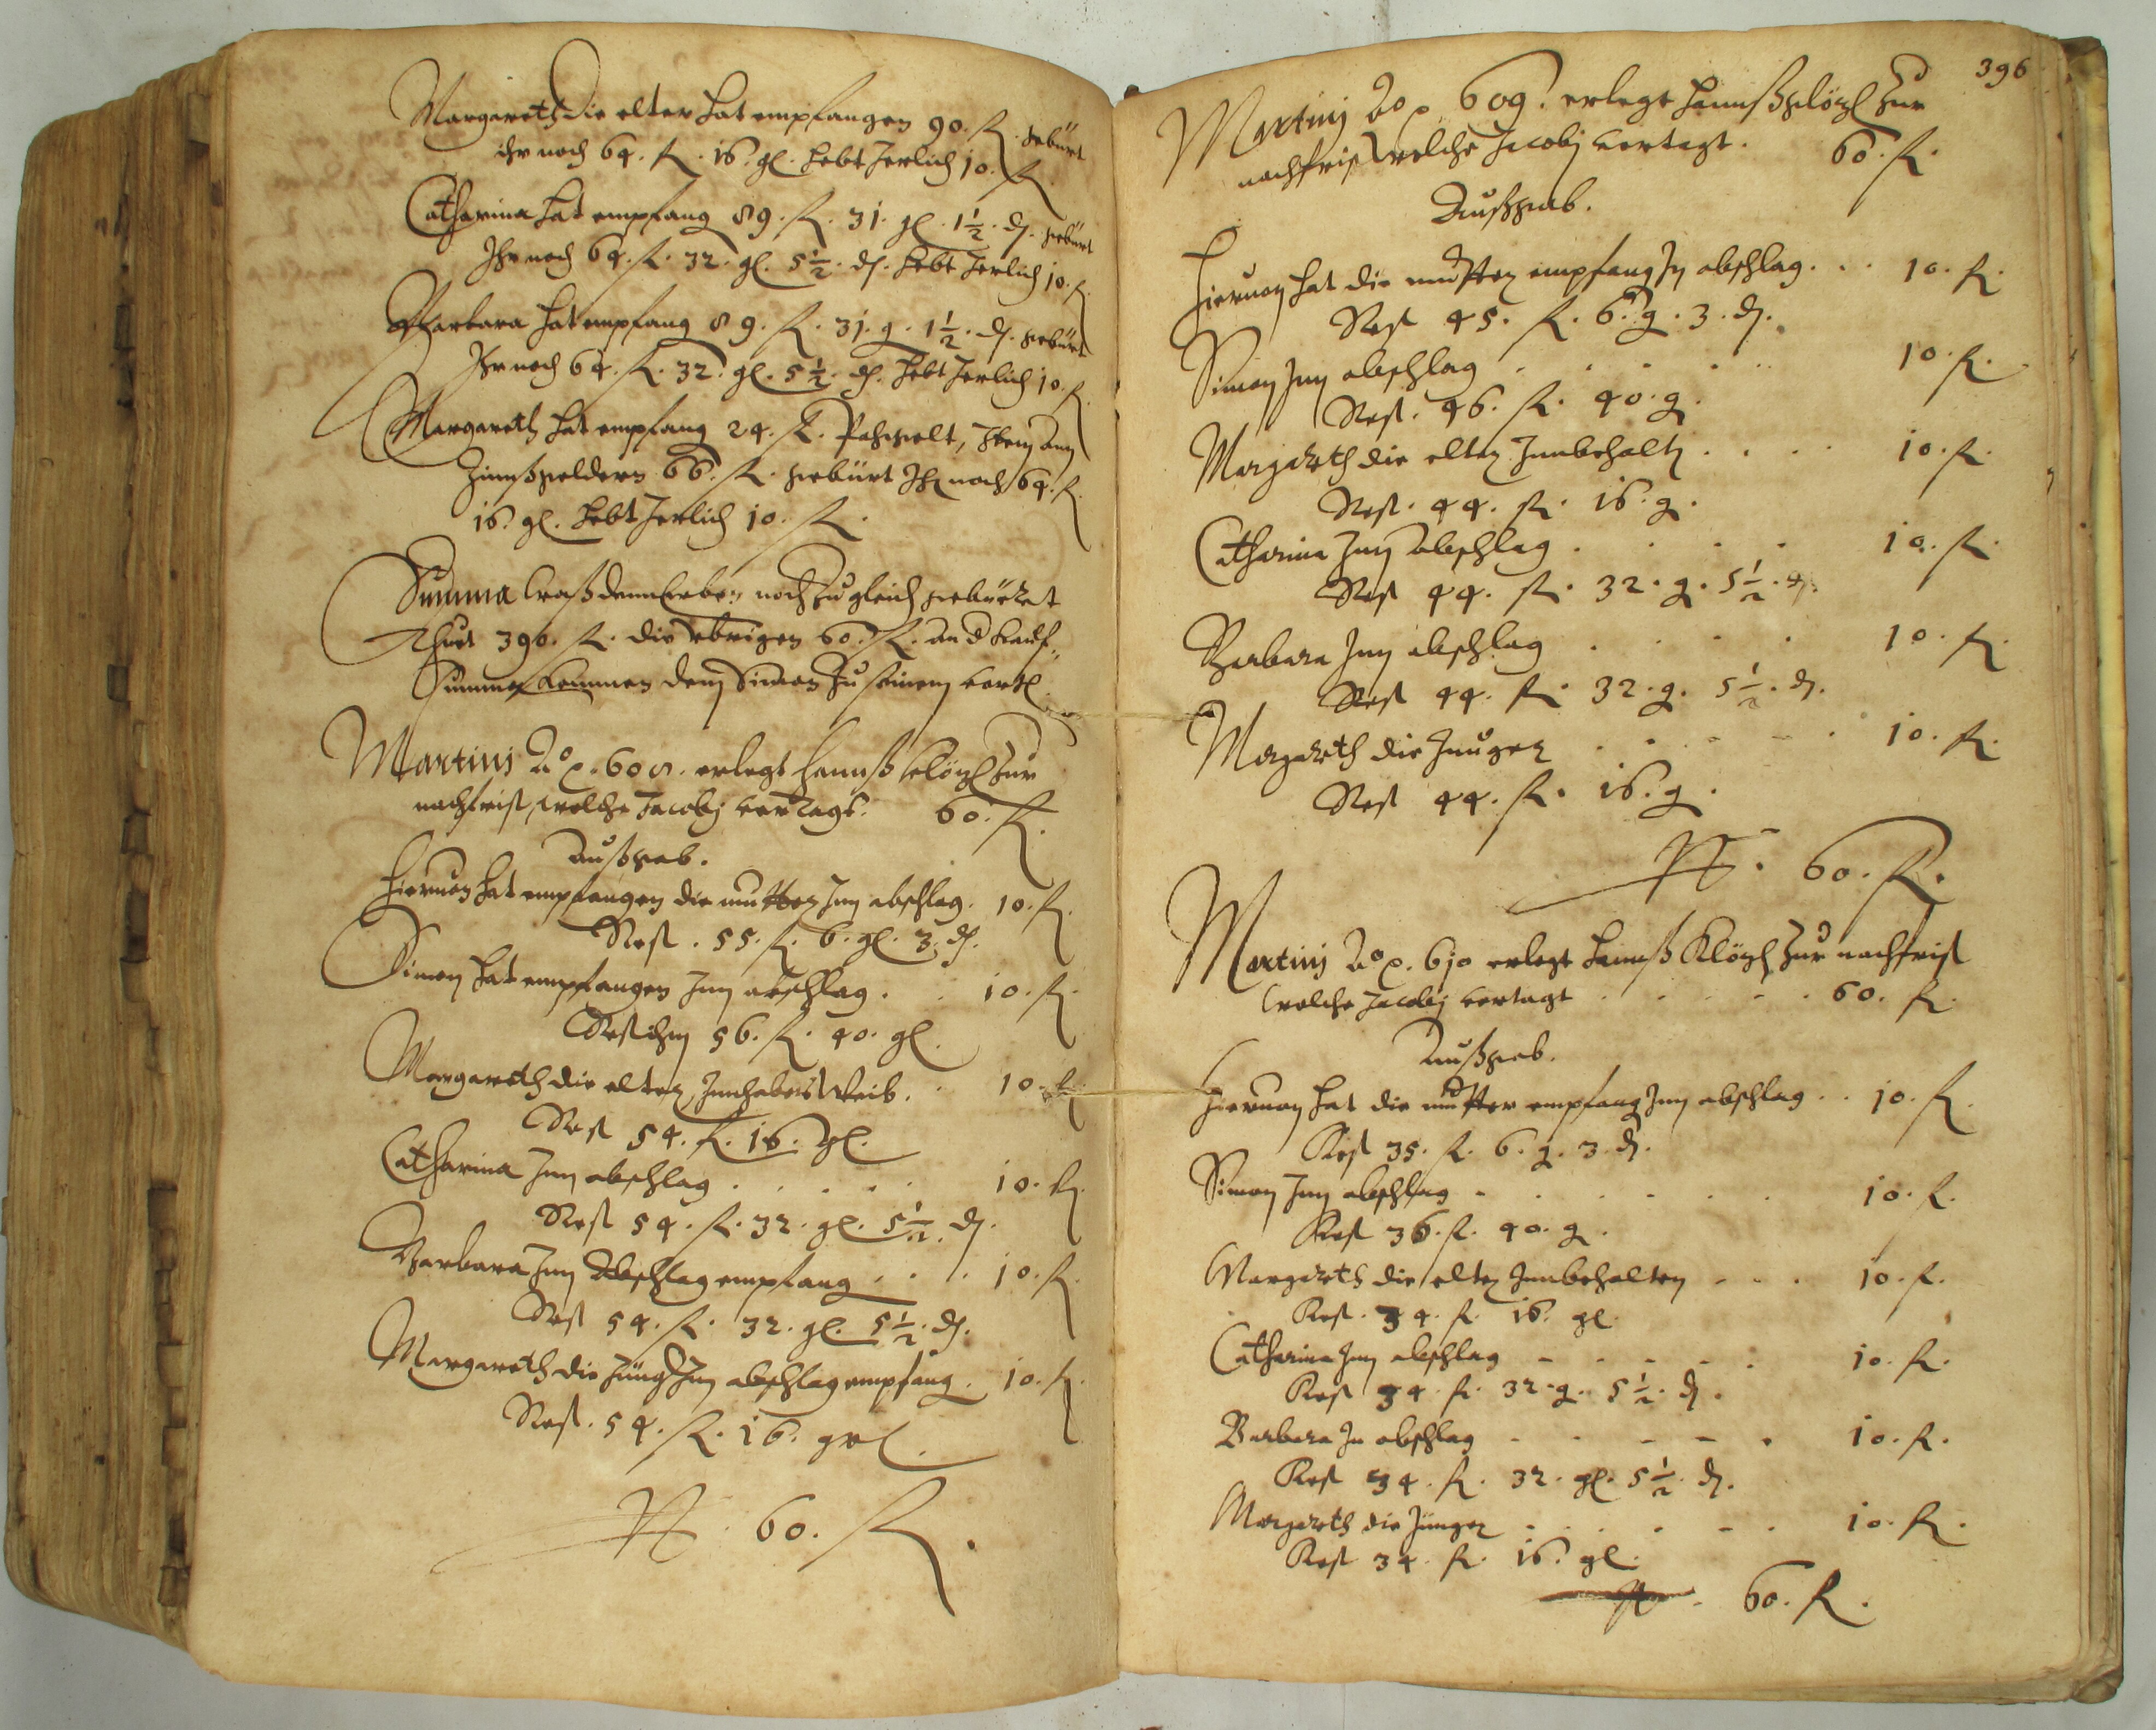 Margareth die elter hat empfangen 90. fl. gebürt
ihr noch 64. fl. 16. gl. hebt Jerlich 10. fl.
Catharina hat empfang 89. fl. 31. gl. 1½. d. gebürt
Ihr noch 64. fl. 32. gl. 5½. d. hebt Jerlich 10. fl.
Barbara hat empfang 89. fl. 31. g. 1½. d. gebürt
Ihr noch 64. fl. 32. gl. 5½. d. hebt Jerlich 10. fl.
Margareth hat empfang 24. fl. Pahrgelt, Item ann
Zinnßgeldern 66. fl. gebürt Ihr noch 64. fl.
16. gl. hebt Jerlich 10. fl.
Summa waß denn Erben noch zu gleich gebüeret
Thuet 390. fl. die vbrigen 60. fl. an d Kauf-
Summa kommen dem Simon zu seinem vorth
Martinj Aō p. 608. erlegt Hannß Klözl zur
nachfrist, welche Jacobj vertagt. 60. fl.
Außgab.
Hieruon hat empfangen die mutter Inn abschlag. 10. fl.
Rest. 55. fl. 6. gl. 3. d.
Simon hat empfangen Inn abschlag. 10. fl.
Rest ihm 56. fl. 40. gl.
Margareth die elter Innhabers Weib. 10. fl.
Rest 54. fl. 16. gl.
Catharina Inn abschlag 10. fl.
Rest 54. fl. 32. gl. 5½. d.
Barbara Inn Abschlag empfang 10. fl.
Rest 54. fl. 32. gl. 5½. d.
Margareth die Jüng Inn abschlag empfang. 10. fl.
Rest. 54. fl. 16. grl.
60. fl.
396
Martinj Aō p. 609. erlegt Hannß Klözl zur
nachfrist welche Jacobj vertagt. 60. fl.
Außgab.
Hieruon hat die mutter empfang In abschlag. 10. fl.
Rest 45. fl. 6. g. 3. d.
Simon Inn abschlag 10. fl.
Rest. 46. fl. 40. g.
Margareth die elter Innbehaltn 10. fl.
Rest. 44. fl. 16. g.
Catharina Inn abschlag 10. fl.
Rest 44. fl. 32. g. 5½. d.
Barbara Inn abschlag 10. fl.
Rest 44. fl. 32. g. 5½. d.
Margareth die Junger 10. fl.
Rest 44. fl. 16. g.
60. fl.
Martinj Aō p. 610 erlegt Hannß Klözl zur nachfrist
welche Jacobj vertagt 60. fl.
Außgab.
Hieruon hat die mutter empfang Inn abschlag 10. fl.
Rest 35. fl. 6. g. 3. d.
Simon Inn abschlag 10. fl.
Rest 36. fl. 40. g.
Margareth die elter Innbehalten 10. fl.
Rest. 34. fl. 16. gl.
Catharina Inn abschlag 10. fl.
Rest 34. fl. 32. g. 5½. d.
Barbara In abschlag 10. fl.
Rest 34. fl. 32. gl. 5½. d.
Margareth die Jünger 10. fl.
Rest 34. fl. 16. gl.
60. fl.